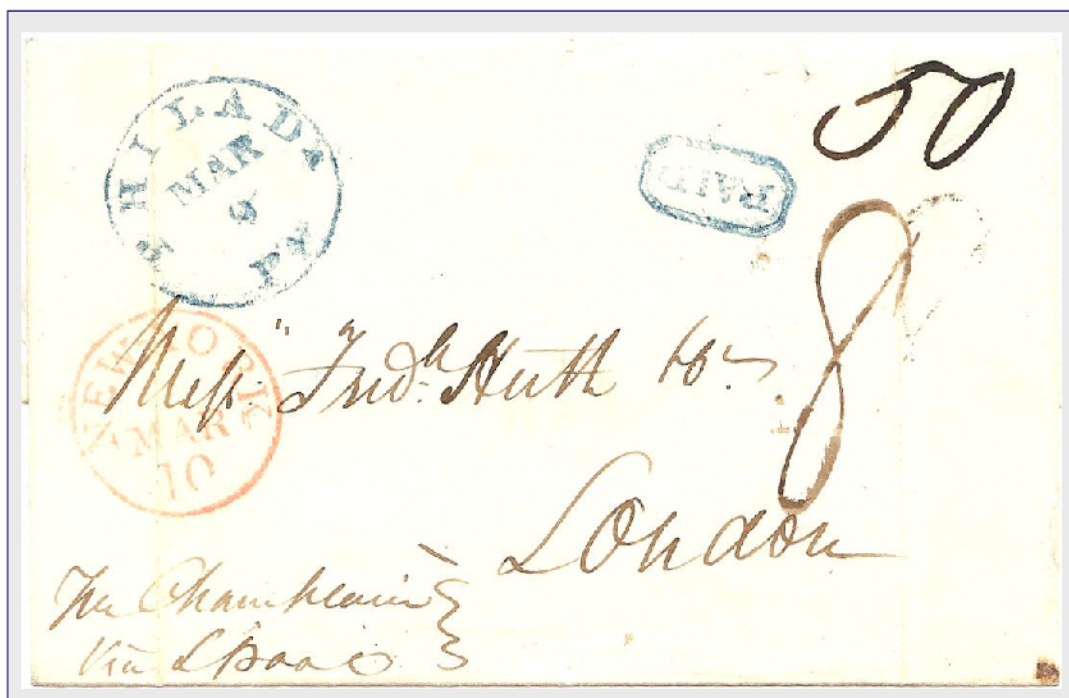 50
PHILADA
MAR
9
PY
PAID
8
NEW YORK
MAR
10
Messrs. Fredk. Huth & Co.
London
Per Champlain
Via LPool